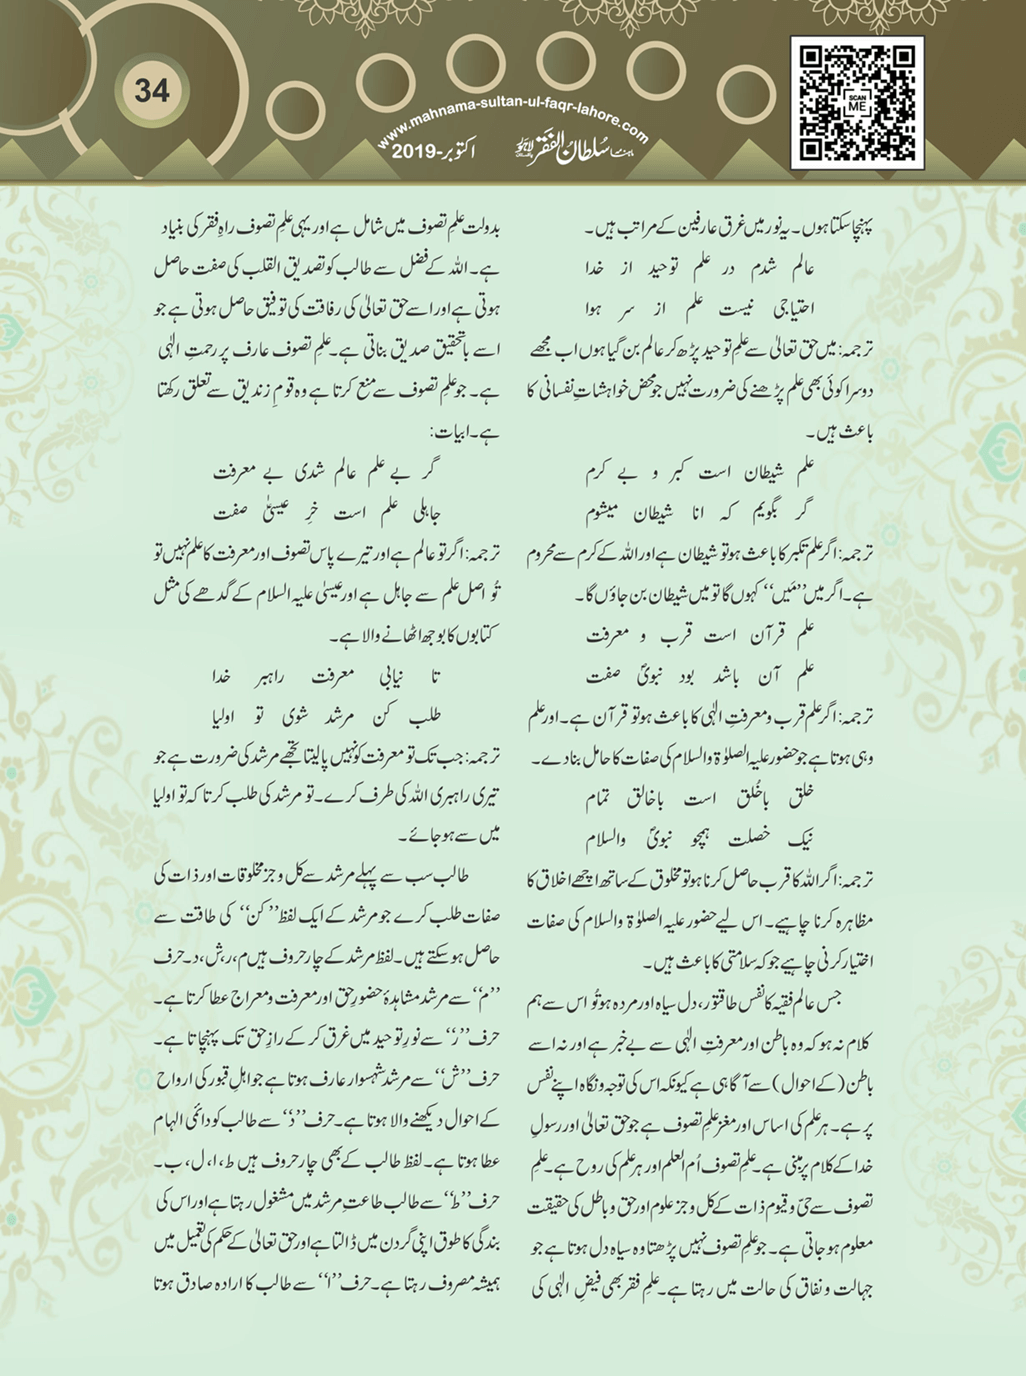 34
www.mahnama-sultan-ul-faqr-lahore.com
ماہنامہ سلطان الفقر لاہور
اکتوبر-2019
SCAN ME
پہنچا سکتا ہوں۔ یہ نور میں غرق عارفین کے مراتب ہیں۔
عالم شدم در علم توحید از خدا
احتیاجی نیست علم از سر ہوا
ترجمہ: میں حق تعالیٰ سے علمِ توحید پڑھ کر عالم بن گیا ہوں اب مجھے
دوسرا کوئی بھی علم پڑھنے کی ضرورت نہیں جو محض خواہشاتِ نفسانی کا
باعث ہیں۔
علم شیطان است کبر و بے کرم
گر بگویم کہ انا شیطان میشوم
ترجمہ: اگر علم تکبر کا باعث ہو تو شیطان ہے اور اللہ کے کرم سے محروم
ہے۔ اگر میں ’’مَیں‘‘ کہوں گا تو میں شیطان بن جاؤں گا۔
علم قرآن است قرب و معرفت
علم آن باشد بود نبویؐ صفت
ترجمہ: اگر علم قرب و معرفتِ الٰہی کا باعث ہو تو قرآن ہے۔ اور علم
وہی ہوتا ہے جو حضور علیہ الصلوٰۃ والسلام کی صفات کا حامل بنا دے۔
خلق باخُلق است باخالق تمام
نیک خصلت ہمچو نبویؐ والسلام
ترجمہ: اگر اللہ کا قرب حاصل کرنا ہو تو مخلوق کے ساتھ اچھے اخلاق کا
مظاہرہ کرنا چاہیے۔ اس لیے حضور علیہ الصلوٰۃ والسلام کی صفات
اختیار کرنی چاہیے جو کہ سلامتی کا باعث ہیں۔
جس عالم فقیہ کا نفس طاقتور، دل سیاہ اور مردہ ہو تُو اس سے ہم
کلام نہ ہو کہ وہ باطن اور معرفتِ الٰہی سے بے خبر ہے اور نہ اسے
باطن (کے احوال) سے آگاہی ہے کیونکہ اس کی توجہ و نگاہ اپنے نفس
پر ہے۔ ہر علم کی اساس اور مغز علمِ تصوف ہے جو حق تعالیٰ اور رسولِ
خدا کے کلام پر مبنی ہے۔ علمِ تصوف اُم العلم اور ہر علم کی روح ہے۔ علمِ
تصوف سے حیّ و قیوم ذات کے کل و جز علوم اور حق و باطل کی حقیقت
معلوم ہو جاتی ہے۔ جو علمِ تصوف نہیں پڑھتا وہ سیاہ دل ہوتا ہے جو
جہالت و نفاق کی حالت میں رہتا ہے۔ علمِ فقر بھی فیضِ الٰہی کی
بدولت علمِ تصوف میں شامل ہے اور یہی علمِ تصوف راہِ فقر کی بنیاد
ہے۔ اللہ کے فضل سے طالب کو تصدیق القلب کی صفت حاصل
ہوتی ہے اور اسے حق تعالیٰ کی رفاقت کی توفیق حاصل ہوتی ہے جو
اسے باتحقیق صدیق بناتی ہے۔ علمِ تصوف عارف پر رحمتِ الٰہی
ہے۔ جو علمِ تصوف سے منع کرتا ہے وہ قومِ زندیق سے تعلق رکھتا
ہے۔ ابیات:
گر بے علم عالم شدی بے معرفت
جاہلی علم است خرِ عیسیٰؑ صفت
ترجمہ: اگر تو عالم ہے اور تیرے پاس تصوف اور معرفت کا علم نہیں تو
تُو اصل علم سے جاہل ہے اور عیسیٰ علیہ السلام کے گدھے کی مثل
کتابوں کا بوجھ اٹھانے والا ہے۔
تا نیابی معرفت راہبر خدا
طلب کن مرشد شوی تو اولیا
ترجمہ: جب تک تو معرفت کو نہیں پا لیتا تجھے مرشد کی ضرورت ہے جو
تیری راہبری اللہ کی طرف کرے۔ تو مرشد کی طلب کرتا کہ تو اولیا
میں سے ہو جائے۔
طالب سب سے پہلے مرشد سے کل و جز مخلوقات اور ذات کی
صفات طلب کرے جو مرشد کے ایک لفظ ’’کن‘‘ کی طاقت سے
حاصل ہو سکتے ہیں۔ لفظ مرشد کے چار حروف ہیں م، ر، ش، د۔ حرف
’’م‘‘ سے مرشد مشاہدۂ حضورِ حق اور معرفت و معراج عطا کرتا ہے۔
حرف ’’ر‘‘ سے نورِ توحید میں غرق کر کے رازِ حق تک پہنچاتا ہے۔
حرف ’’ش‘‘ سے مرشد شہسوار عارف ہوتا ہے جو اہلِ قبور کی ارواح
کے احوال دیکھنے والا ہوتا ہے۔ حرف ’’د‘‘ سے طالب کو دائمی الہام
عطا ہوتا ہے۔ لفظ طالب کے بھی چار حروف ہیں ط، ا، ل، ب۔
حرف ’’ط‘‘ سے طالب طاعتِ مرشد میں مشغول رہتا ہے اور اس کی
بندگی کا طوق اپنی گردن میں ڈالتا ہے اور حق تعالیٰ کے حکم کی تعمیل میں
ہمیشہ مصروف رہتا ہے۔ حرف ’’ا‘‘ سے طالب کا ارادہ صادق ہوتا